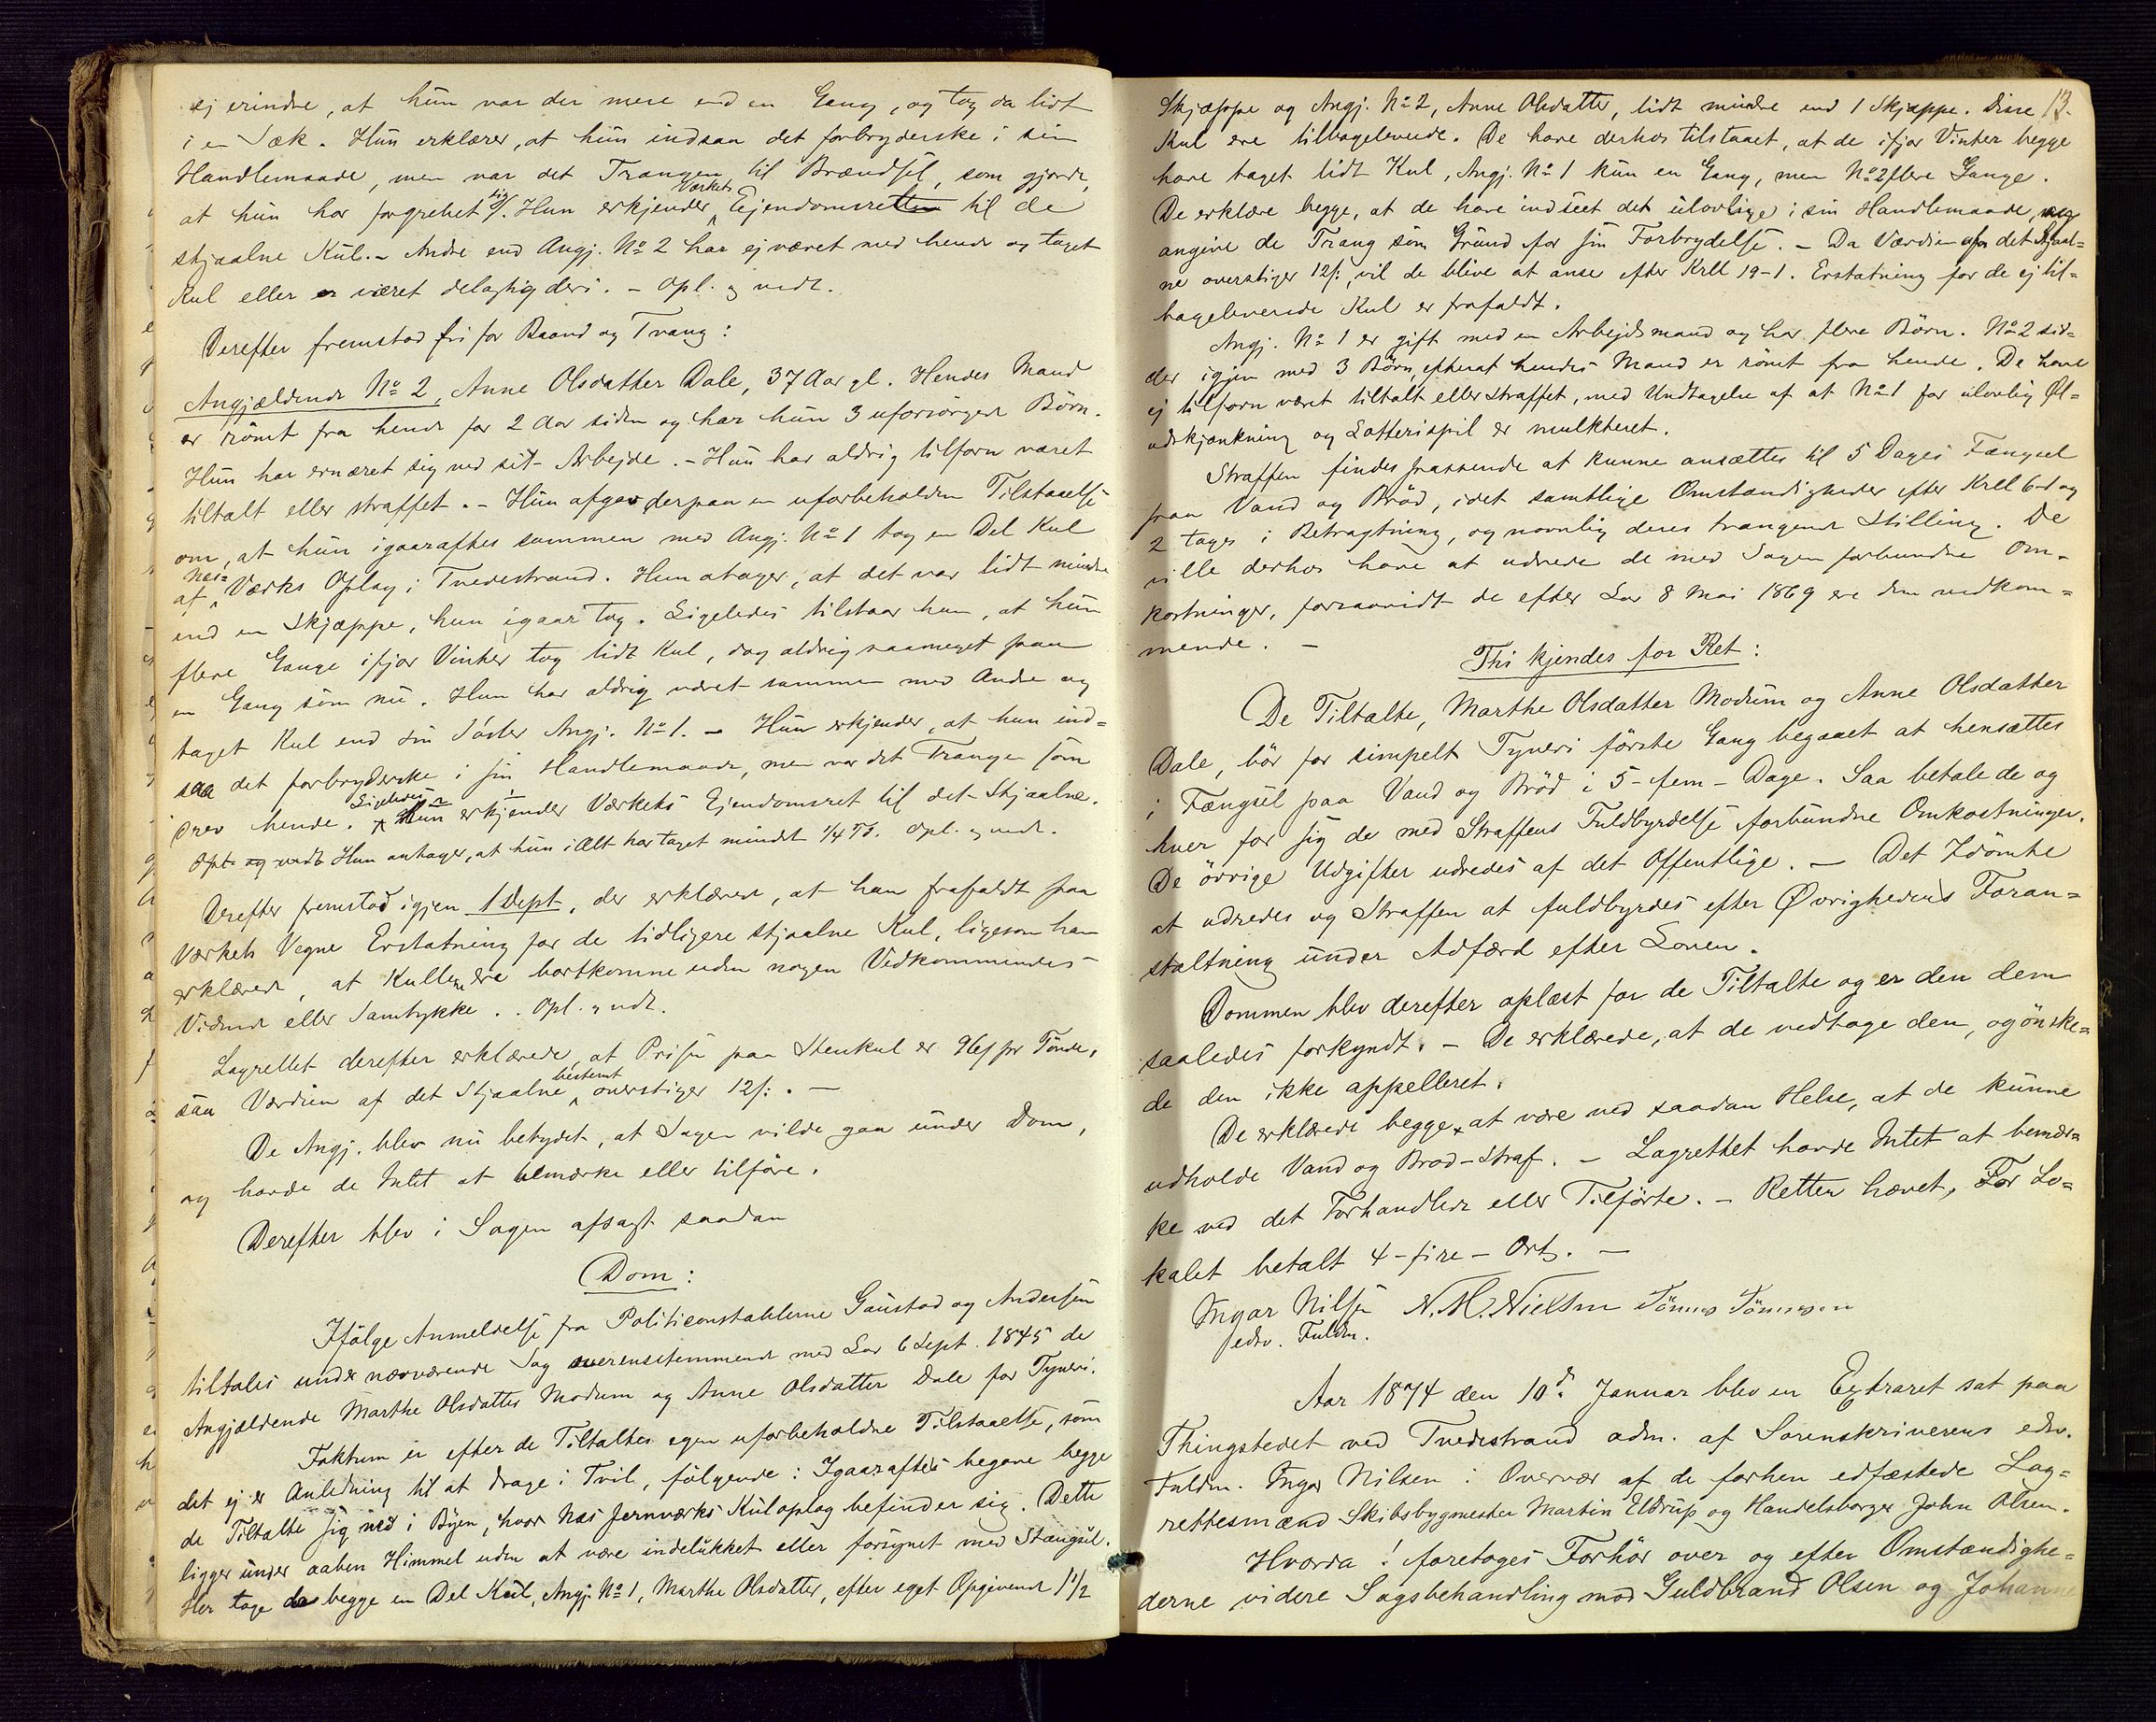 ej erindre, at hun var der mere end en Gang, og tog da lidt
i en Sæk. Hun erklærer, at hun indsaa det forbryderske i sin
Handlemaade, men var det Trangen til Brændsel, som gjorde,
at hun har forgrebet sig. Hun erkjender Værkets Ejendomsretten til de
stjaalne Kul. - Andre end Angj. No 2 har ej været med hende og taget
Kul eller er været delagtig deri. - Opl. og vedt.
Derefter fremstod fri for Baand og Tvang:
Angjældende No 2, Anne Olsdatter Dale, 37 Aar gl. Hendes Mand
er rømt fra hende for 2 Aar siden og har hun 3 uforsørgede Børn.
Hun har ernæret sig ved sit Arbejde. - Hun har aldrig tilforn været
tiltalt eller straffet. - Hun afgav derpaa en uforbeholden Tilstaaelse
om, at hun igaaraftes sammen med Angj. No 1 tog en Del Kul
af Næs= Værks Oplag i Tvedestrand. Hun antager, at det var lidt mindre
end en Skjæppe, hun igaar tog. Ligeledes tilstaar hun, at hun
flere Gange ifjor Vinter tog lidt Kul, dog aldrig saameget paa
en Gang som nu. Hun har aldrig været sammen med Andre og
taget Kul end sin Søster Angj. No 1. - Hun erkjender, at hun ind=
saa det forbryderske i sin Handlemaade, men var det Trangen som
drev hende. Ligeledes Hun erkjender Værkets Ejendomsret til det Stjaalne.
Opl. og vedt Hun antager, at hun i Alt har taget mindst 1/4 Td. Opl. og vedt.
Derefter fremstod igjen 1 Dept, der erklærede, at han frafaldt paa
Værkets Vegne Erstatning for de tidligere stjaalne Kul, ligesom han
erklærede, at Kullene ere bortkomne uden nogen Vedkommendes
Vidende eller Samtykke. . Opl. & vedt.
Lagrettet derefter erklærede, at Prisen paa Stenkul er 96 s pr Tønde,
saa Værdien af det Stjaalne bestemt overstiger 12 s: . -
De Angj. blev nu betydet, at Sagen vilde gaa under Dom,
og havde de Intet at bemærke eller tilføre.
Derefter blev i Sagen afsagt saadan
Dom:
Ifølge Anmeldelse fra Politiconstablerne Gaustad og Andersen
tiltales under nærværende Sag overensstemmende med Lov 6 Sept. 1845 de
Angjældende Marthe Olsdatter Modum og Anne Olsdatter Dale for Tyveri.
Faktum er efter de Tiltaltes egen uforbeholdne Tilstaaelse, som
det ej er Anledning til at drage i Tvil, følgende: Igaaraftes begave begge
de Tiltalte sig ned i Byen, hvor Næs Jernværks Kuloplag befinder sig. Dette
ligger under aaben Himmel uden at være indelukket eller forsynet med Stængsel.
Her toge de begge en Del Kul, Angj. No 1, Marthe Olsdatter, efter eget Opgivende 1 1/2
13.
Skjæppe og Angj. No 2, Anne Olsdatter, lidt mindre end 1 Skjæppe. Disse
Kul ere tilbageleverede. De have derhos tilstaaet, at de ifjor Vinter begge
have taget lidt Kul, Angj. No 1 kun en Gang, men No 2 flere Gange.
De erklære begge, at de have indseet det ulovlige i sin Handlemaade, og
angive de Trang som Grund for sin Forbrydelse. - Da Værdien af det Stjaal=
ne overstiger 12 s:, vil de blive at anse efter Krll 19-1. Erstatning for de ej til=
bageleverede Kul er frafaldt.
Angj. No 1 er gift med en Arbejdsmand og har flere Børn. No 2 sid=
der igjen med 3 Børn, efterat hendes Mand er rømt fra hende. De have
ej tilforn været tiltalt eller straffet, med Undtagelse af at No 1 for ulovlig Øl=
udskjænkning og Lotterispil er mulkteret.
Straffen findes passende at kunne ansættes til 5 Dages Fængsel
paa Vand og Brød, idet samtlige Omstændigheder efter Krll 6-1 og
2 tages i Betragtning, og navnlig deres trængende Stilling. De
ville derhos have at udrede de med Sagen forbundne Om=
kostninger, forsaavidt de efter Lov 8 Mai 1869 ere dem vedkom=
mende. -
Thi kjendes for Ret:
De Tiltalte, Marthe Olsdatter Modum og Anne Olsdatter
Dale, bør for simpelt Tyveri første Gang begaaet at hensættes
i Fængsel paa Vand og Brød i 5 - fem - Dage. Saa betale de og
hver for sig de med Straffens Fuldbyrdelse forbundne Omkostninger.
De øvrige Udgifter udredes af det Offentlige. - Det Idømte
at udredes og Straffen at fuldbyrdes efter Øvrighedens Foran=
staltning under Adfærd efter Loven.
Dommen blev derefter oplæst for de Tiltalte og er den dem
saaledes forkyndt. - De erklærede, at de vedtage den, og ønske=
de den ikke appelleret.
De erklærede begge at være ved saadan Helse, at de kunne
udholde Vand og Brød-Straf. - Lagrettet havde Intet at bemær=
ke ved det Forhandlede eller Tilførte. - Retten hævet, For Lo=
kalet betalt 4 - fire - Ort. -
Ingvar Nilsen N. M. Nielsen Tønnes Tønnesen
edsv. Fuldm.
Aar 1874 den 10de Januar blev en Extraret sat paa
Thingstedet ved Tvedestrand adm. af Sorenskriverens edsv.
Fuldm. Ingvar Nilsen i Overvær af de forhen edfæstede Lag=
rettesmænd Skibsbygmester Martin Eldrup og Handelsborger John Olsen.
Hvorda! foretoges Forhør over og efter Omstændighe=
derne videre Sagsbehandling mod Guldbrand Olsen og Johanne